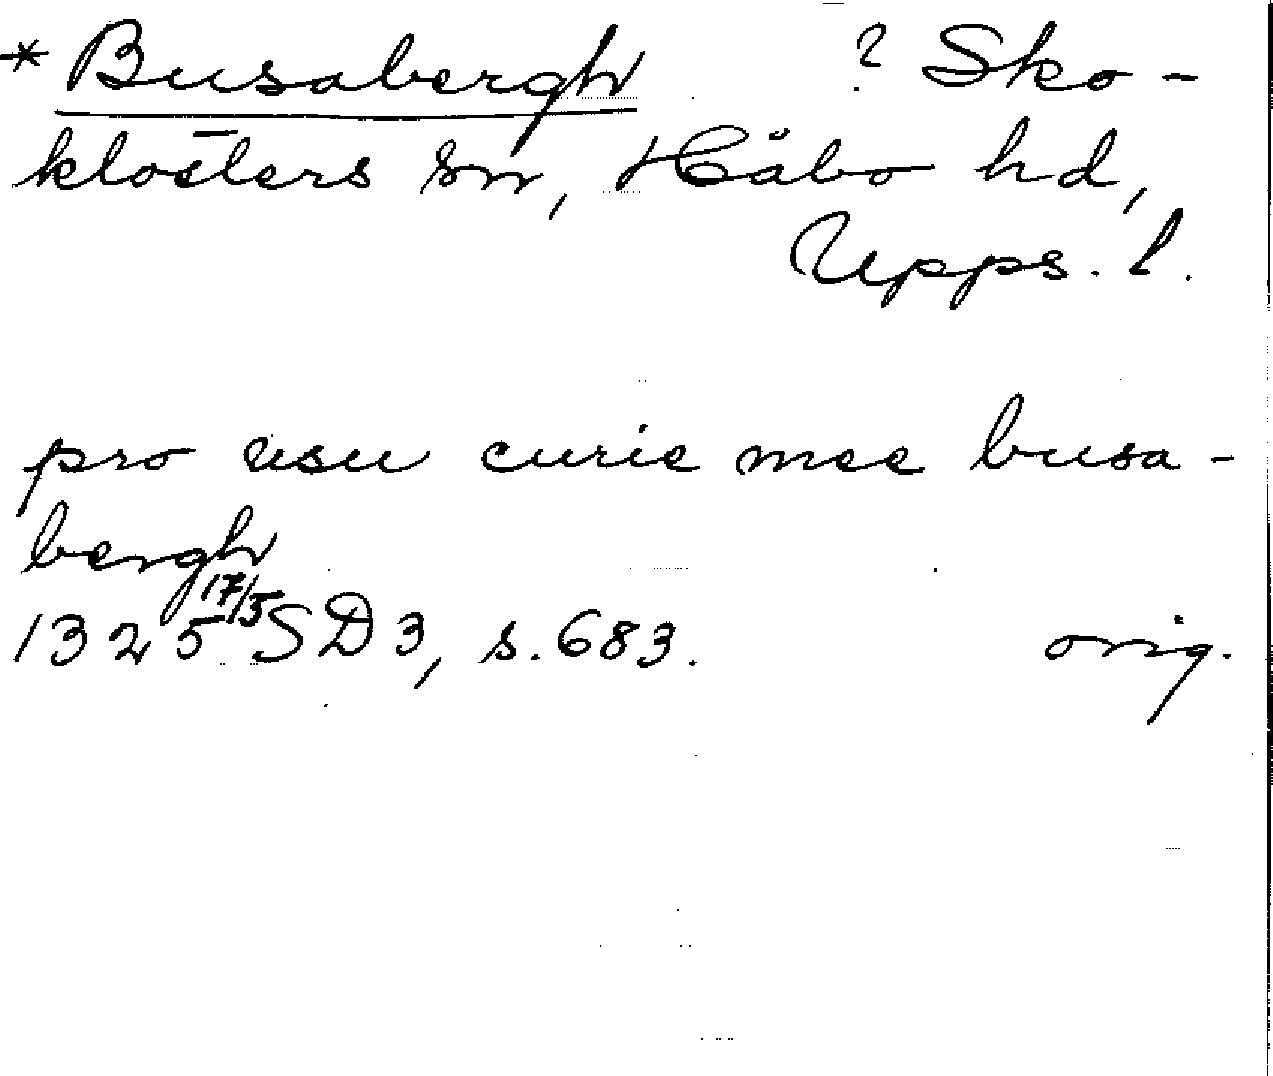 * Busabergh ? Sko-
klosters sn, Håbo hd,
Upps. l.
pro usu curie mee busa-
bergh
1325 17/5 SD 3, s. 683. orig.